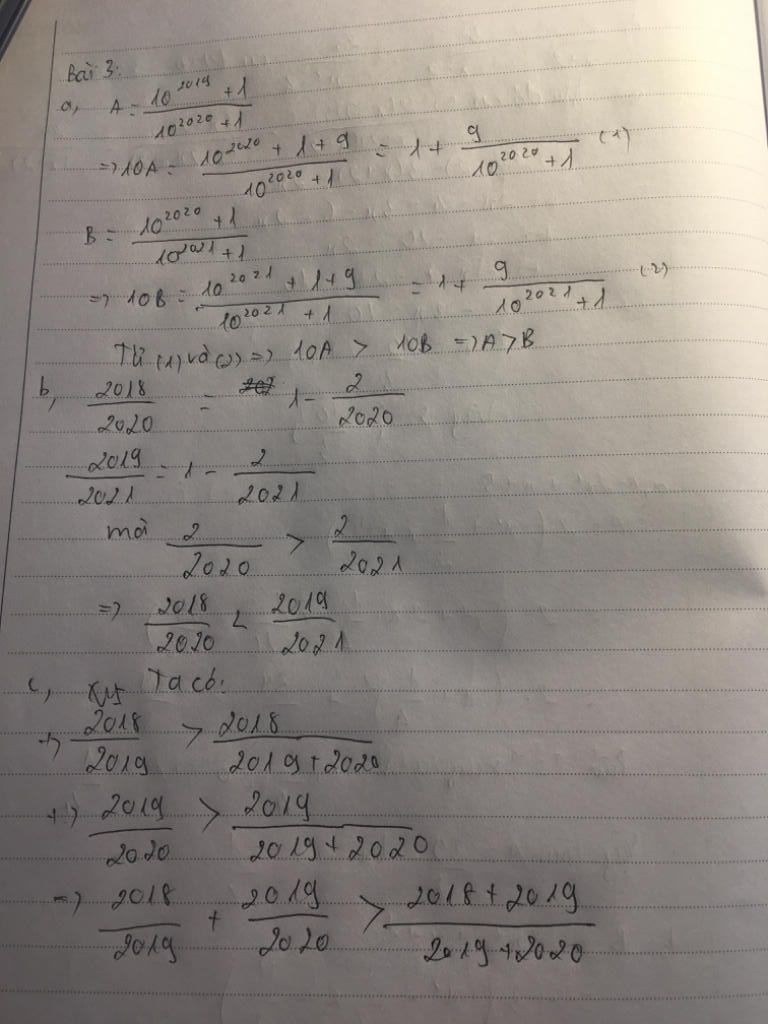 Bài 3:
a, A = \frac{10^{2019} + 1}{10^{2020} + 1}
=> 10A = \frac{10^{2020} + 1 + 9}{10^{2020} + 1} = 1 + \frac{9}{10^{2020} + 1} (1)
B = \frac{10^{2020} + 1}{10^{2021} + 1}
=> 10B = \frac{10^{2021} + 1 + 9}{10^{2021} + 1} = 1 + \frac{9}{10^{2021} + 1} (2)
Từ (1) và (2) => 10A > 10B => A > B
b, \frac{2018}{2020} = 1 - \frac{2}{2020}
\frac{2019}{2021} = 1 - \frac{2}{2021}
mà \frac{2}{2020} > \frac{2}{2021}
=> \frac{2018}{2020} < \frac{2019}{2021}
c, Ta có:
+) \frac{2018}{2019} > \frac{2018}{2019 + 2020}
+) \frac{2019}{2020} > \frac{2019}{2019 + 2020}
=> \frac{2018}{2019} + \frac{2019}{2020} > \frac{2018 + 2019}{2019 + 2020}